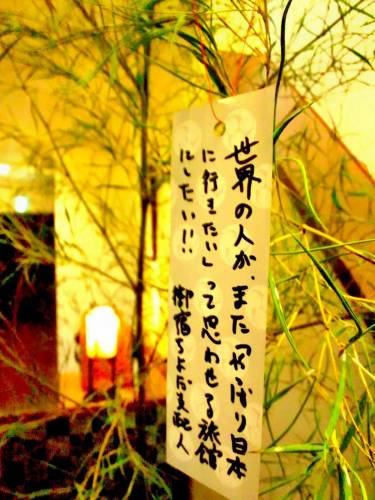 世界の人が、また「やっぱり日本
に行きたい」って思わせる旅館
にしたい!!
御宿ちよだ支配人